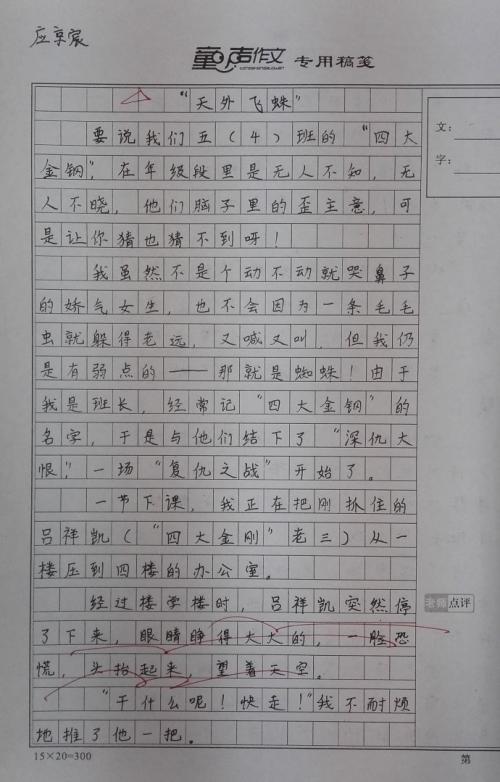 庄京宸
童声作文 专用稿笺
“天外飞蛛”
要说我们五（4）班的“四大
金钢”，在年级段里是无人不知，无
人不晓，他们脑子里的歪主意，可
是让你猜也猜不到呀！
我虽然不是个动不动就哭鼻子
的娇气女生，也不会因为一条毛毛
虫就躲得老远，又喊又叫，但我仍
是有弱点的——那就是蜘蛛！由于
我是班长，经常记“四大金钢”的
名字，于是与他们结下了“深仇大
恨”，一场“复仇之战”开始了。
一节下课，我正在把刚抓住的
吕祥凯（“四大金刚”老三）从一
楼压到四楼的办公室。
经过楼学楼时，吕祥凯突然停
了下来，眼睛睁得大大的，一脸恐
慌，头抬起来，望着天空。
“干什么呢！快走！”我不耐烦
地推了他一把。
文：
字：
老师点评
15×20=300
第